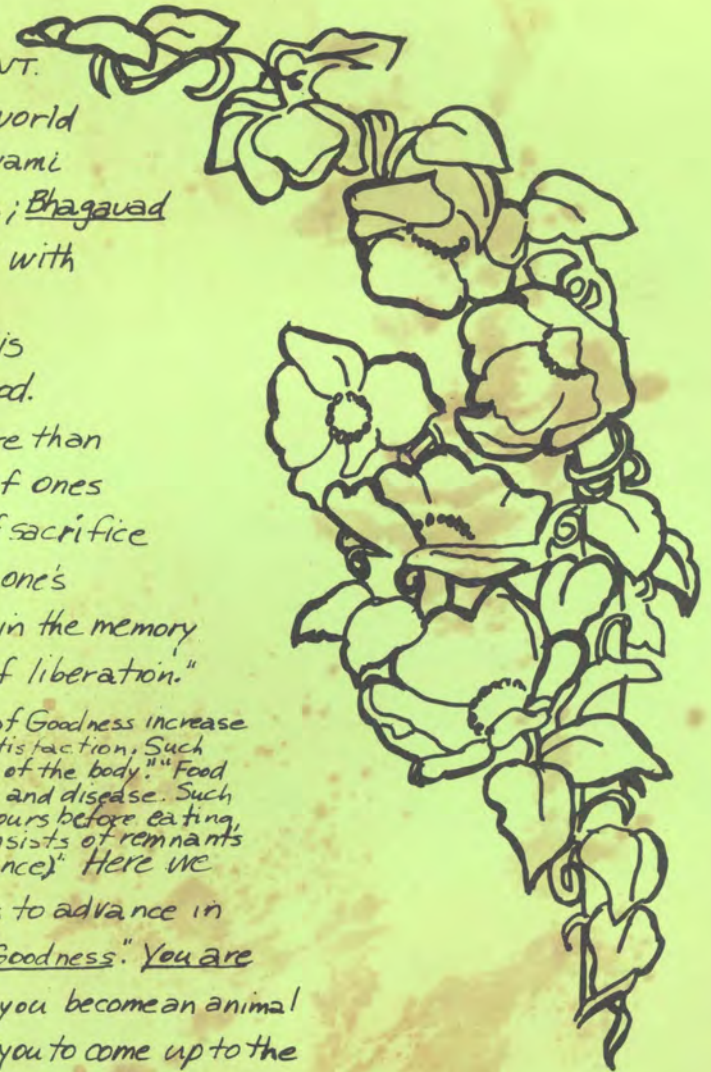 NT.
world
wami
; Bhagavad
with
is
od.
re than
of ones
f sacrifice
one's
in the memory
of liberation."
of Goodness increase
tisfaction. Such
of the body." "Food
and disease. Such
ours before eating,
nsists of remnants
nce)." Here we
to advance in
Goodness." You are
you become an animal
you to come up to the